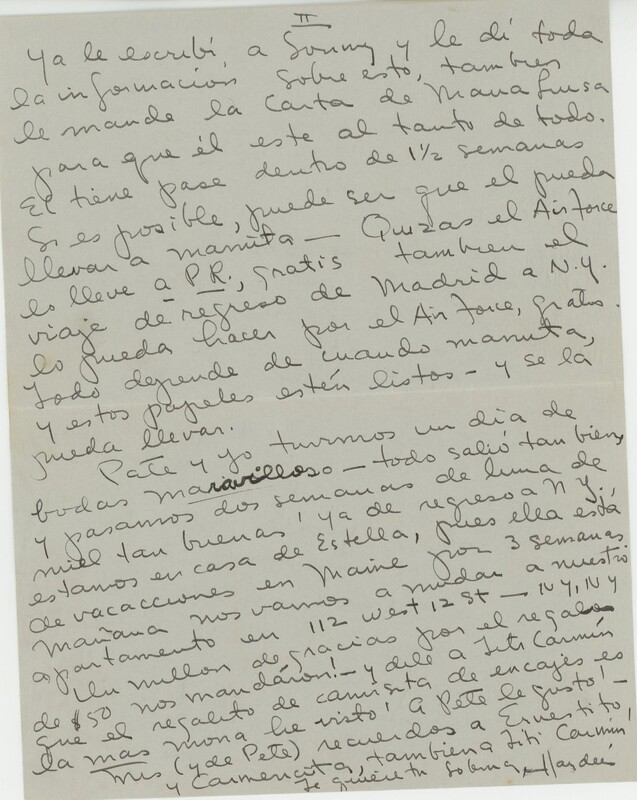 II
Ya le escribí, a Sonny y le dí toda
la información sobre esto, tambien
le mande la Carta de Maria Luisa
para que él este al tanto de todo.
El tiene pase dentro de 1½ semanas
Si es posible, puede ser que el pueda
llevar a manuta — Quizas el Air Force
lo lleve a P.R., gratis tambien el
viaje de regreso de Madrid a N.Y.
lo pueda hacer por el Air Force, gratis.
todo depende de cuando manuta,
y estos papeles estén listos — y se la
pueda llevar.
Pete y yo tuvimos un dia de
bodas maravilloso — todo salió tan bien,
y pasamos dos semanas de luna de
miel tan buenas! ya de regreso a N.Y.
estamos en casa de Estella, pues ella está
de vacacciones en Maine por 3 semanas
Mañana nos vamos a mudar a nuestro
apartamento en 112 West 12 St — NY, NY
Un millon de gracias por el regalo
de $50 nos mandáron! — y dile a Titi Carmín
que el regalito de camisita de encajes es
la mas mona he visto! A Pete le gusto! —
Mis (y de Pete) recuerdos a Ernestito,
y Carmencita, tambien a Titi Carmín!
te quiere tu sobrina,